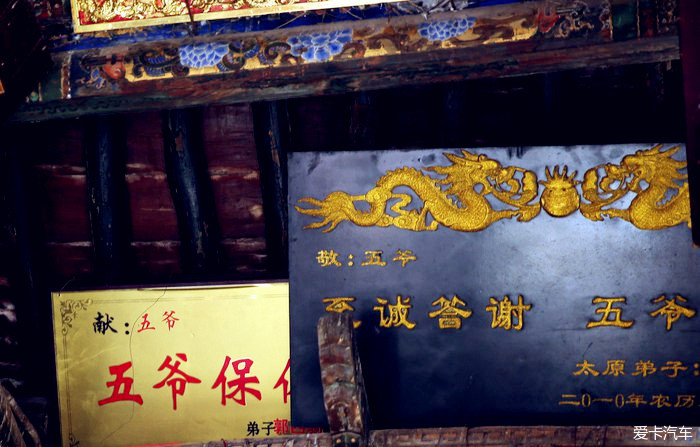 敬:五爷
至诚答谢 五爷
太原弟子:
二〇一〇年农历
献:五爷
五爷保佑
弟子郭
爱卡汽车